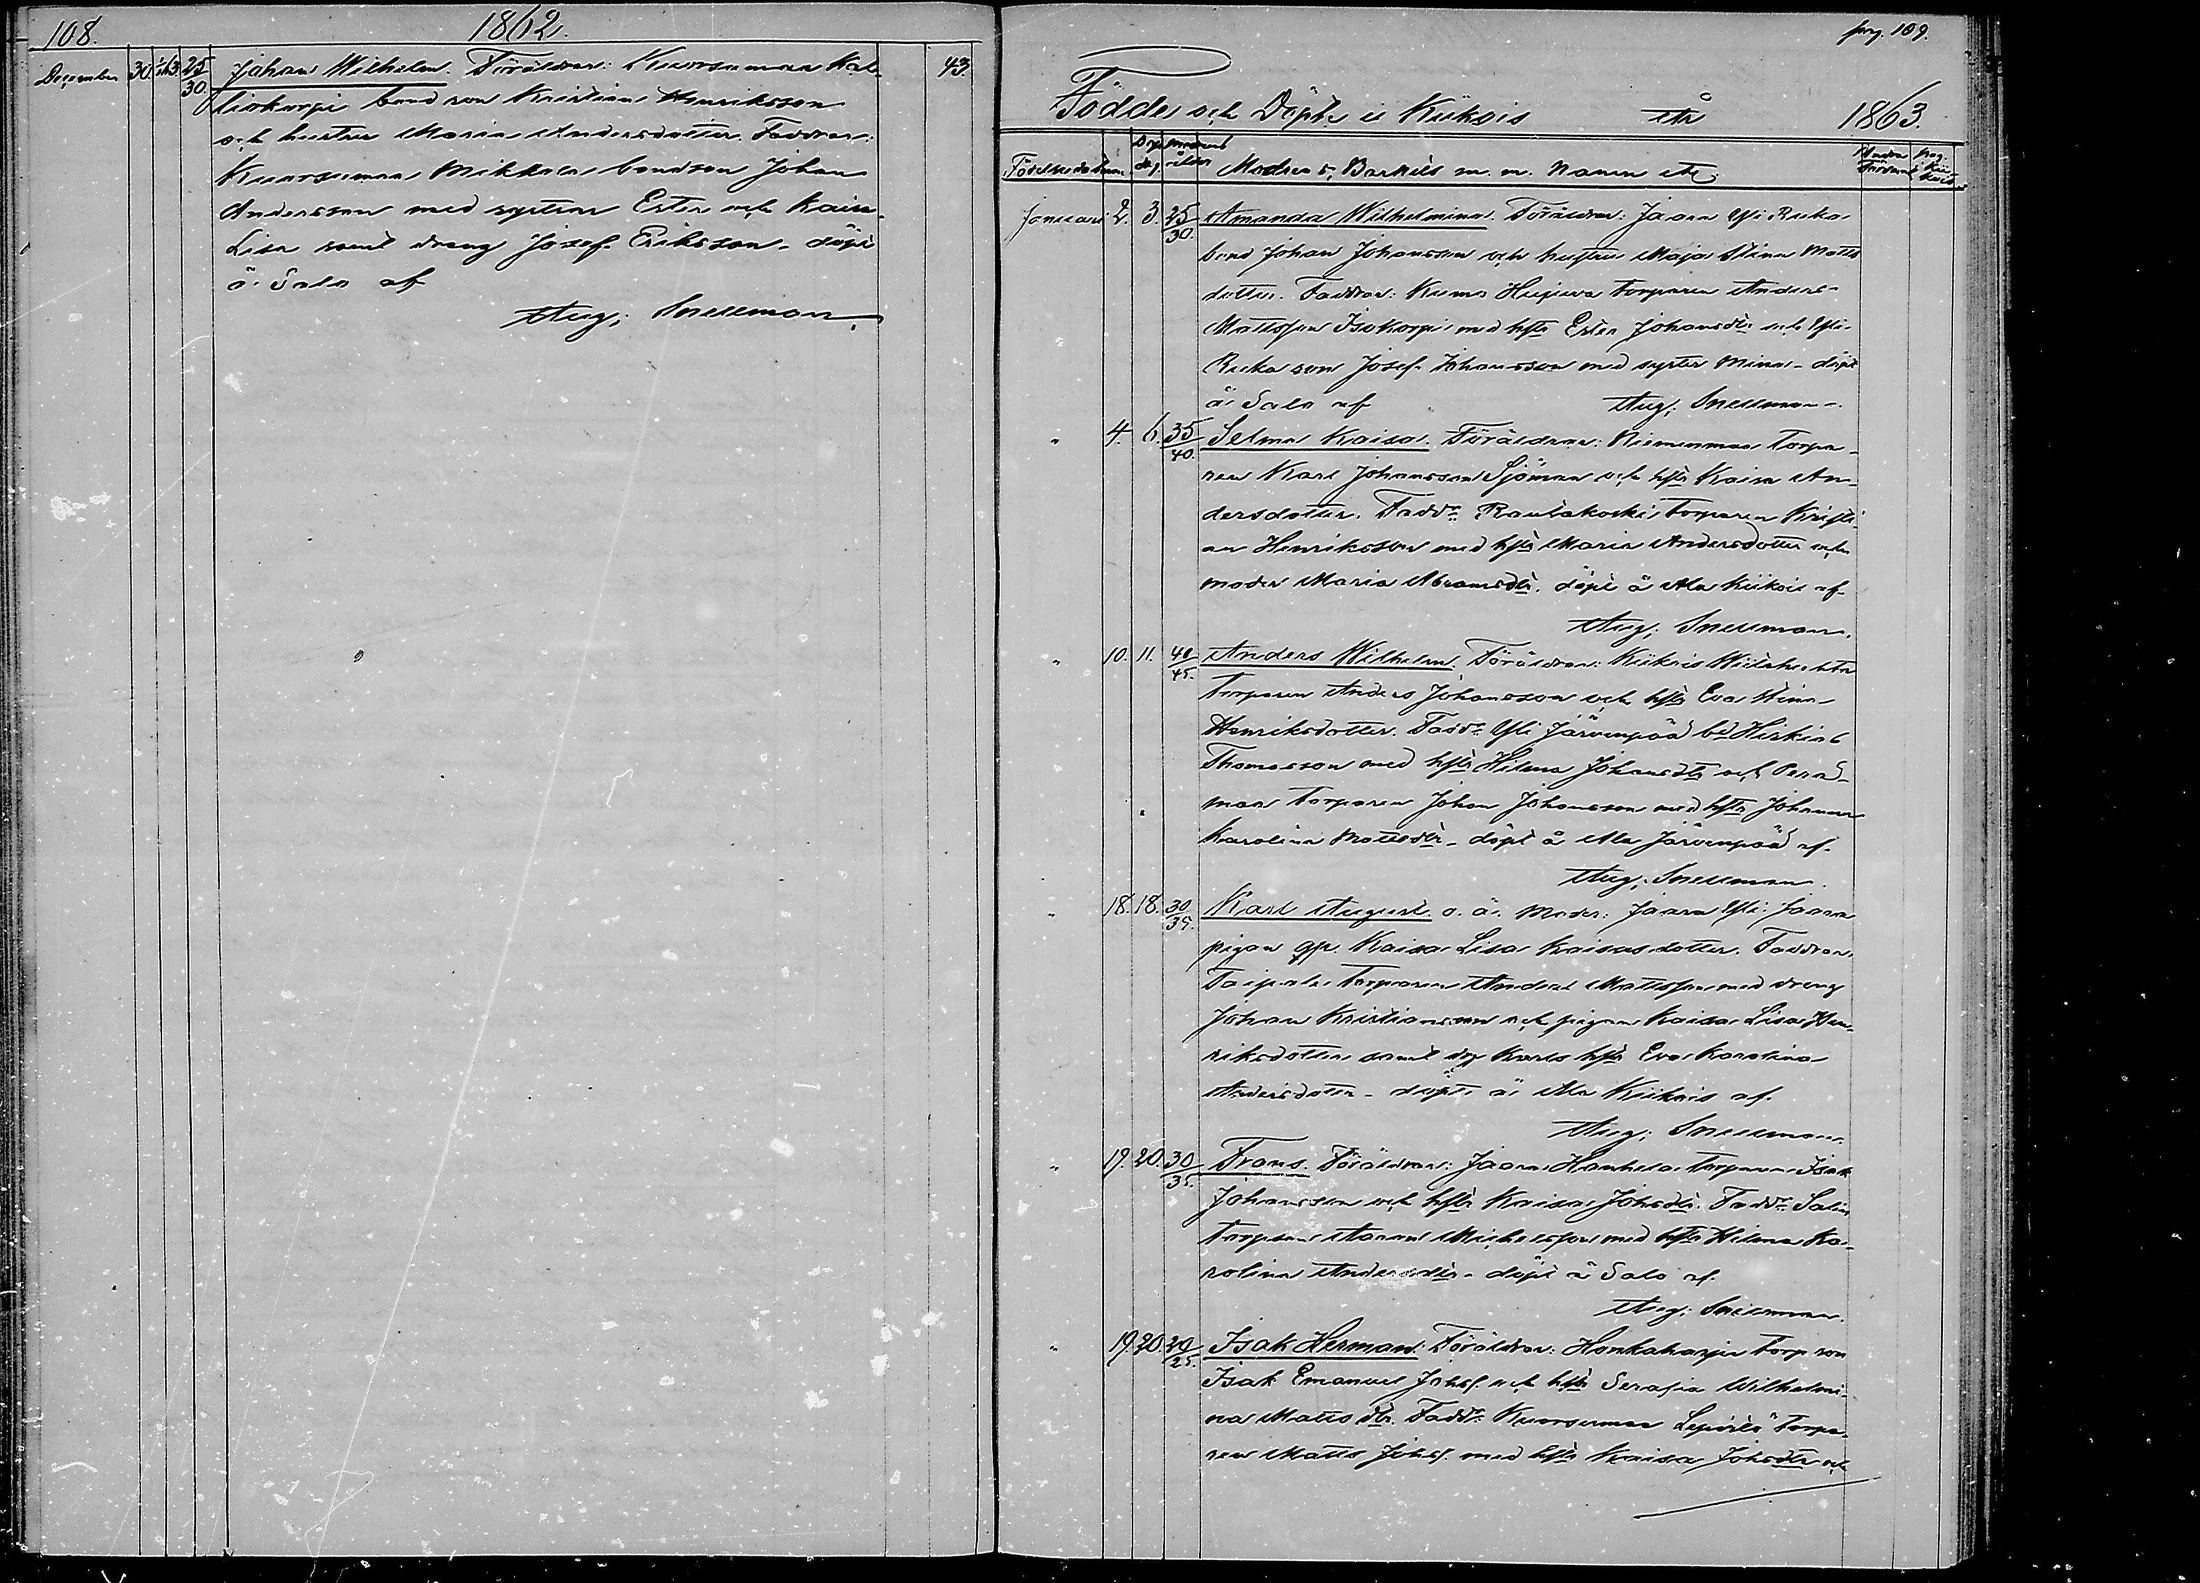 108. 1862.
December 30. 3. 25/30. Johan Wilhelm. Föräldrar: Kuorsumaa Kal-
liokorpi bond son Kristian Henriksson
och hustru Maria Andersdotter. Faddrar:
Kuorsumaa Mikkola bondson Johan
Andersson med systrar Ester och Kaisa
Lisa samt dreng Josef Eriksson - döpt
å Salo af
Aug. Snellman.
43.
pag. 109.
Födde och Döpte i Kiikois År 1863.
Födelsedatum Döp. dag. Modrens ålder Modrens, Barnets m. m. Namn etc.
Januari 2. 3. 25/30. Amanda Wilhelmina. Föräldrar: Jaara Yli Ruka
bond Johan Johansson och hustru Maja Stina Matts
dotter. Faddrar: Kums Torparen Anders
Mattsson Isokorpi med hstr Ester Johansdtr och Yli
Ruka son Josef Johansson med syster Mina - döpt
å Salo af Aug. Snellman.
" 4. 6. 35/40. Selma Kaisa. Föräldrar: Niemenmaa Torpa-
ren Karl Johansson Sjöman och hstr Kaisa An-
dersdotter. Faddr. Rautakoski Torparen Kristi
an Henriksson med hstr Maria Andersdotter och
moder Maria Abramsdtr. döpt å Ala Kiikois af
Aug. Snellman.
" 10. 11. 40/45. Anders Wilhelm. Föräldrar: Kiikois
Torparen Anders Johansson och hstr Eva Stina
Henriksdotter. Faddr. Yli Järvenpää bd
Thomasson med hstr Hilma Johansdtr och
maa torparen Johan Johansson med hstr Johanna
Karolina Mattsdtr - döpt å Ala Järvenpää af
Aug. Snellman.
" 18. 18. 30/35. Karl August. o. ä. Moder: Jaara Yli Jaara
pigan Kaisa Lisa Kaisasdotter. Faddrar.
Taipale Torparen Anders Mattsson med dreng
Johan Kristiansson och pigan Kaisa Lisa Hen-
riksdotter samt Karls hstr Eva Karolina
Andersdotter - döpt å Ala Kiikois af
Aug. Snellman.
" 19. 20. 30/35. Frans. Föräldrar: Jaara Hanhela Torparen Isak
Johansson och hstr Kaisa Johsdtr. Faddr. Salin
torparen Aaron Michelsson med hstr Hilma Ka-
rolina Andersdtr - döpt å Salo af
Aug. Snellman.
" 19. 20. 20/25. Isak Herman. Föräldrar: Honkaharju Torp son
Isak Emanuel Johs. och hstr Serafia Wilhelmi-
na Matts dtr. Faddr. Kuorsumaa Torpa-
ren Matts Johs. med hstr Kaisa Johsdtr och